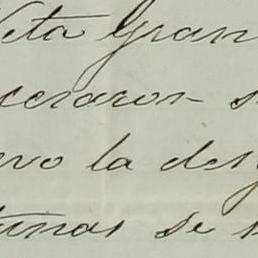 Veta Gran
ceraron s
evo la des
tunas se s